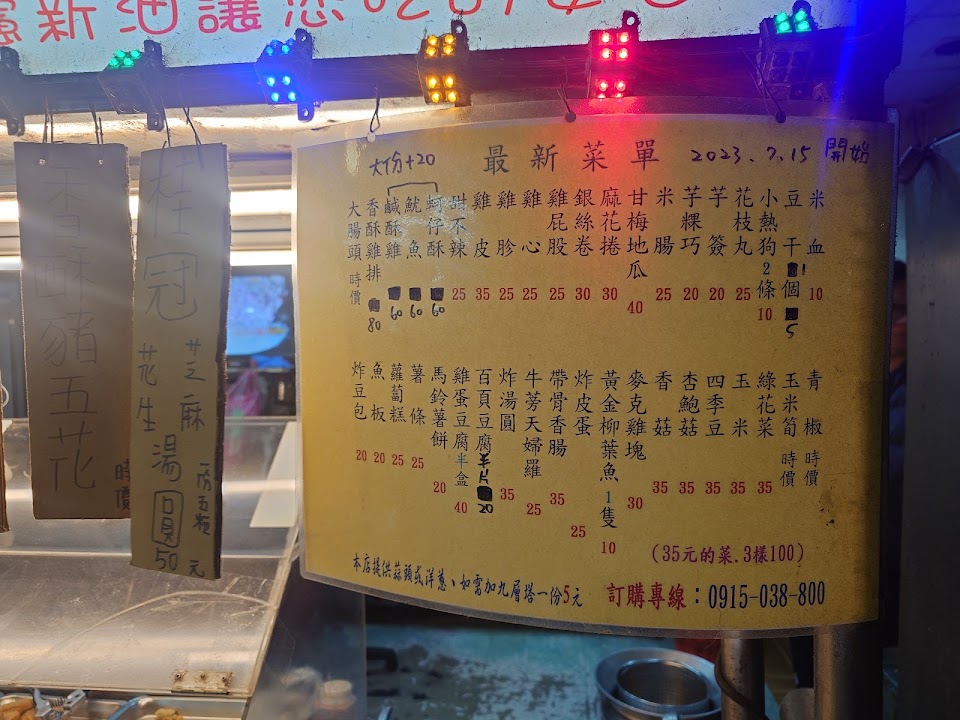 新油讓您吃的安
大份+20
最新菜單 2023.7.15 開始
米血 10
豆干 1個 5
小熱狗 2條 10
花枝丸 25
芋簽 20
芋粿巧 20
米腸 25
甘梅地瓜 40
麻花捲 30
銀絲卷 30
雞屁股 25
雞心 25
雞胗 25
雞皮 35
甜不辣 25
蚵仔酥 60
魷魚 60
鹹酥雞 60
香酥雞排 80
大腸頭 時價
青椒 時價
玉米筍 時價
綠花菜 35
玉米 35
四季豆 35
杏鮑菇 35
香菇 35
麥克雞塊 30
黃金柳葉魚1隻 10
炸皮蛋 25
帶骨香腸 35
牛蒡天婦羅 25
炸湯圓 35
百頁豆腐 半片 20
雞蛋豆腐半盒 40
馬鈴薯餅 20
薯條 25
蘿蔔糕 25
魚板 20
炸豆包 20
(35元的菜.3樣100)
本店提供蒜頭或洋蔥、如需加九層塔一份5元
訂購專線：0915-038-800
桂冠
芝麻
花生
湯圓
一份五顆
50元
香酥豬五花
時價